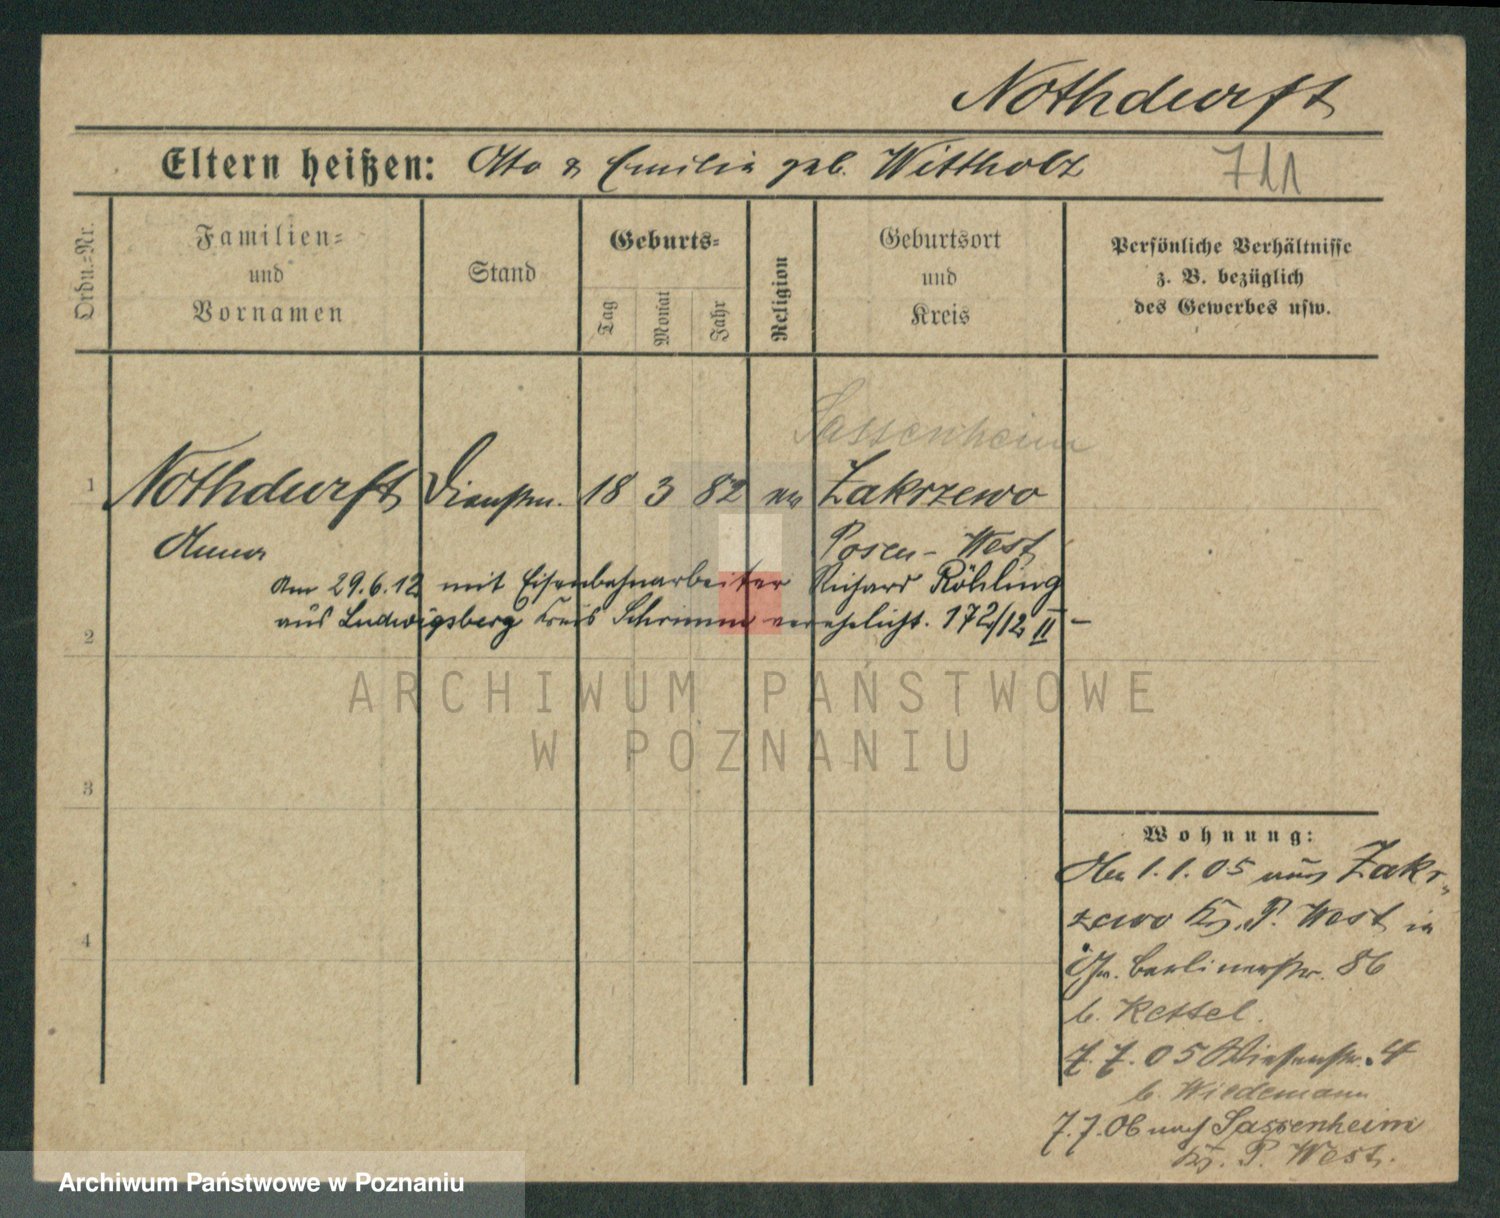 Nothdurft
Eltern heißen: Otto & Emilie geb. Wittholz
711
Ordn.=Nr.
Familien=
und
Vornamen
Stand
Geburts=
Tag
Monat
Jahr
Religion
Geburtsort
und
Kreis
Persönliche Verhältnisse
z. B. bezüglich
des Gewerbes usw.
Sassenheim
1 Nothdurft Dienstm. 18 3 82 ev Zakrzewo
Anna Posen-West
Am 29.6.12 mit Eisenbahnarbeiter Richard Röhling
aus Ludwigsberg Kreis Schrimm verehelicht. 172/12 II -
2
ARCHIWUM PAŃSTWOWE
W POZNANIU
3
Wohnung:
1.1.05 aus Zakr-
zewo Kr. P. West in
Berlinerstr. 86
b. Kessel.
7.7.05 Wiesenstr. 4
b. Wiedemann
7.7.06 nach Sassenheim
Kr. P. West.
4
Archiwum Państwowe w Poznaniu